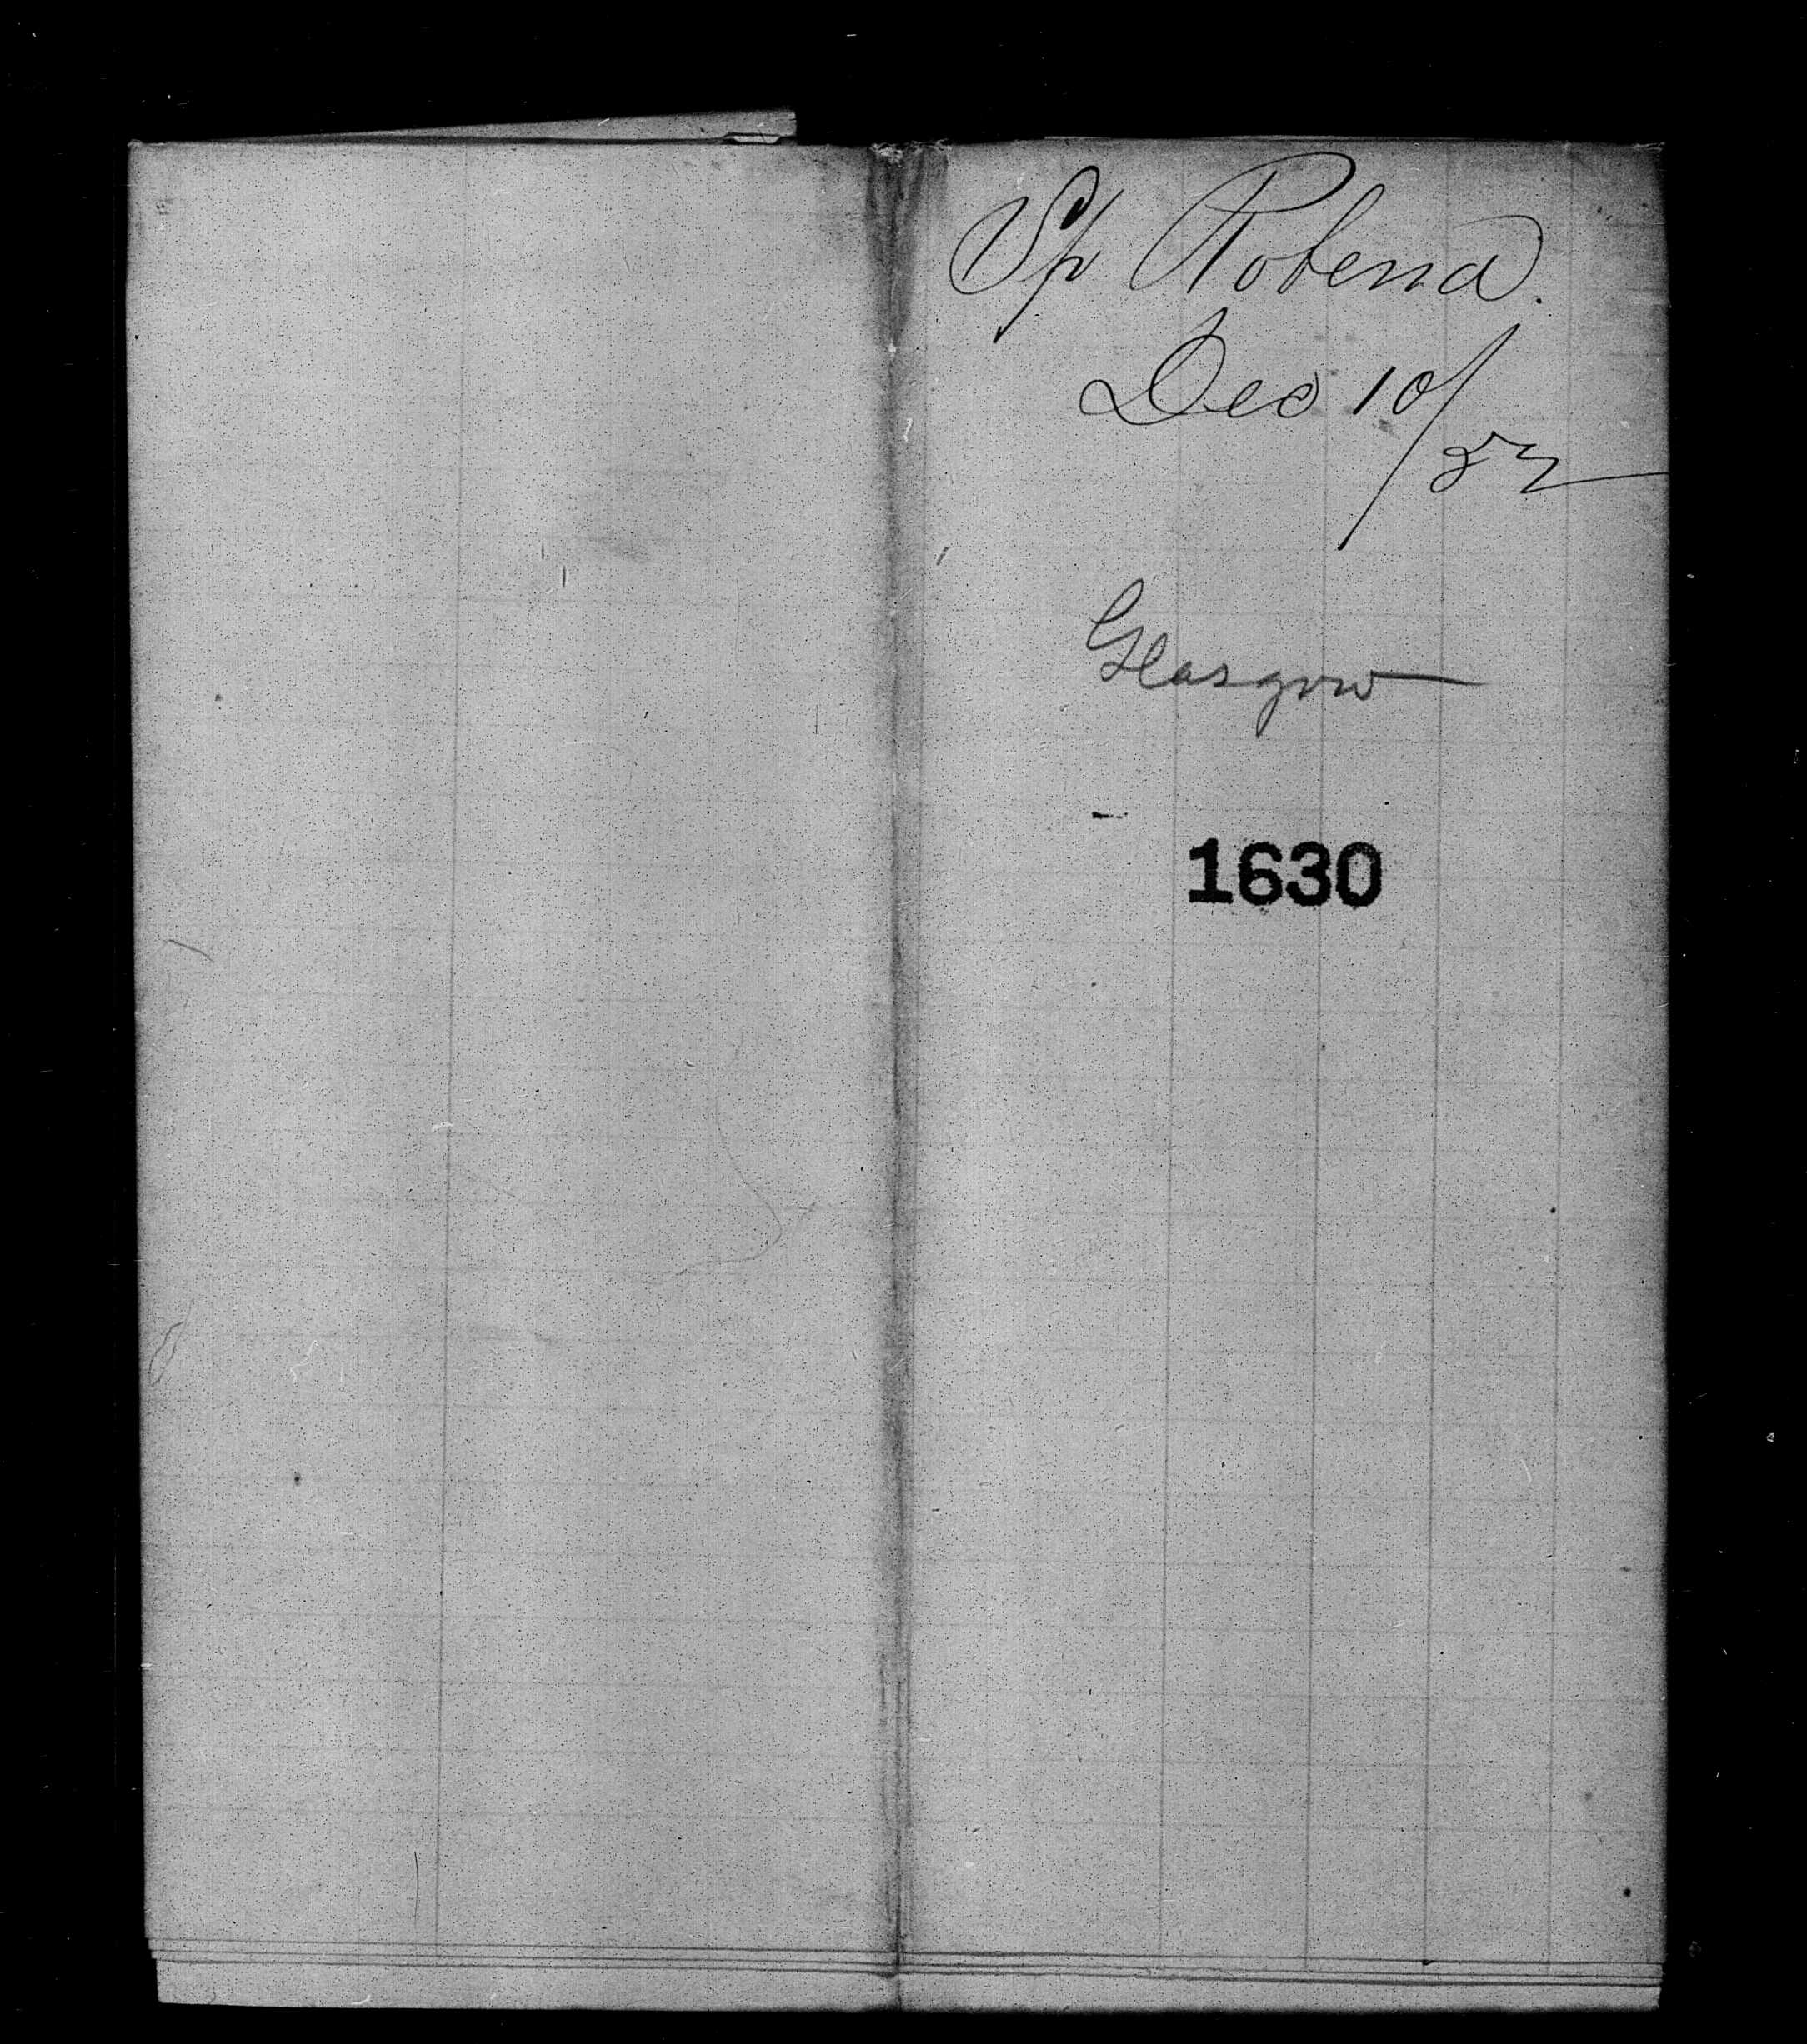 Sp Robena.
Dec 10/52
Glasgow
1630